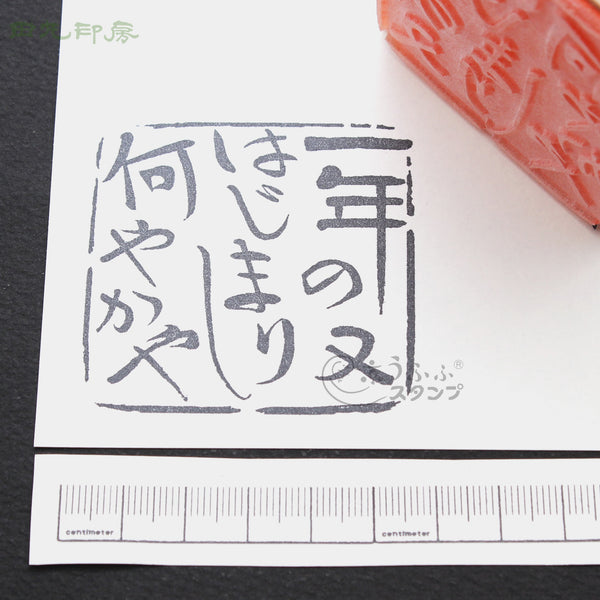 一年の又
はじまりし
何やかや
うふふ®
スタンプ
印房
centimeter
centimeter